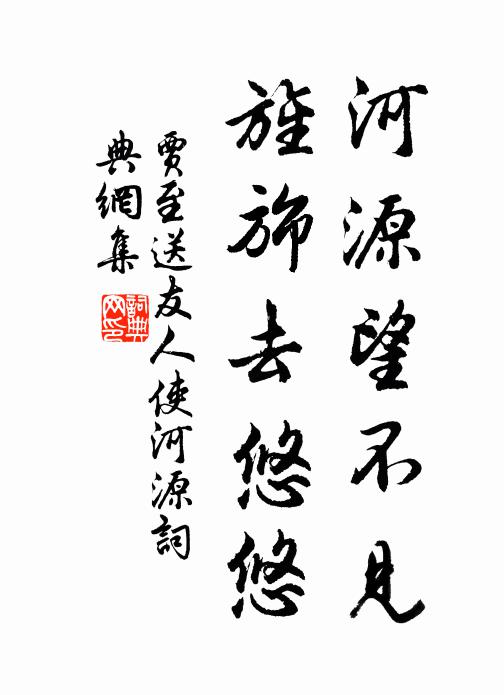 河源望不見
旌旆去悠悠
賈至送友人使河源詞
典網集
詞典
网印